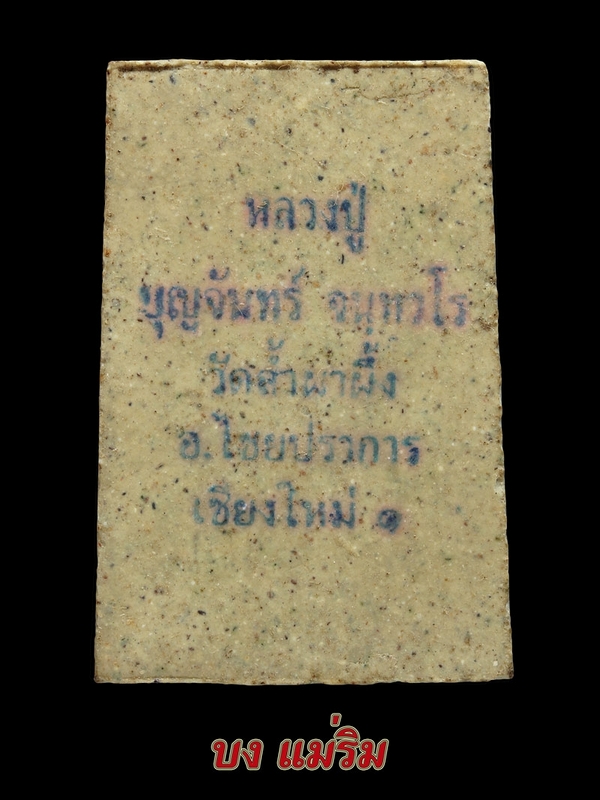 หลวงปู่
บุญจันทร์ จนฺทวโร
วัดถ้ำผาผึ้ง
อ.ไชยปราการ
เชียงใหม่ ๑
บง แม่ริม